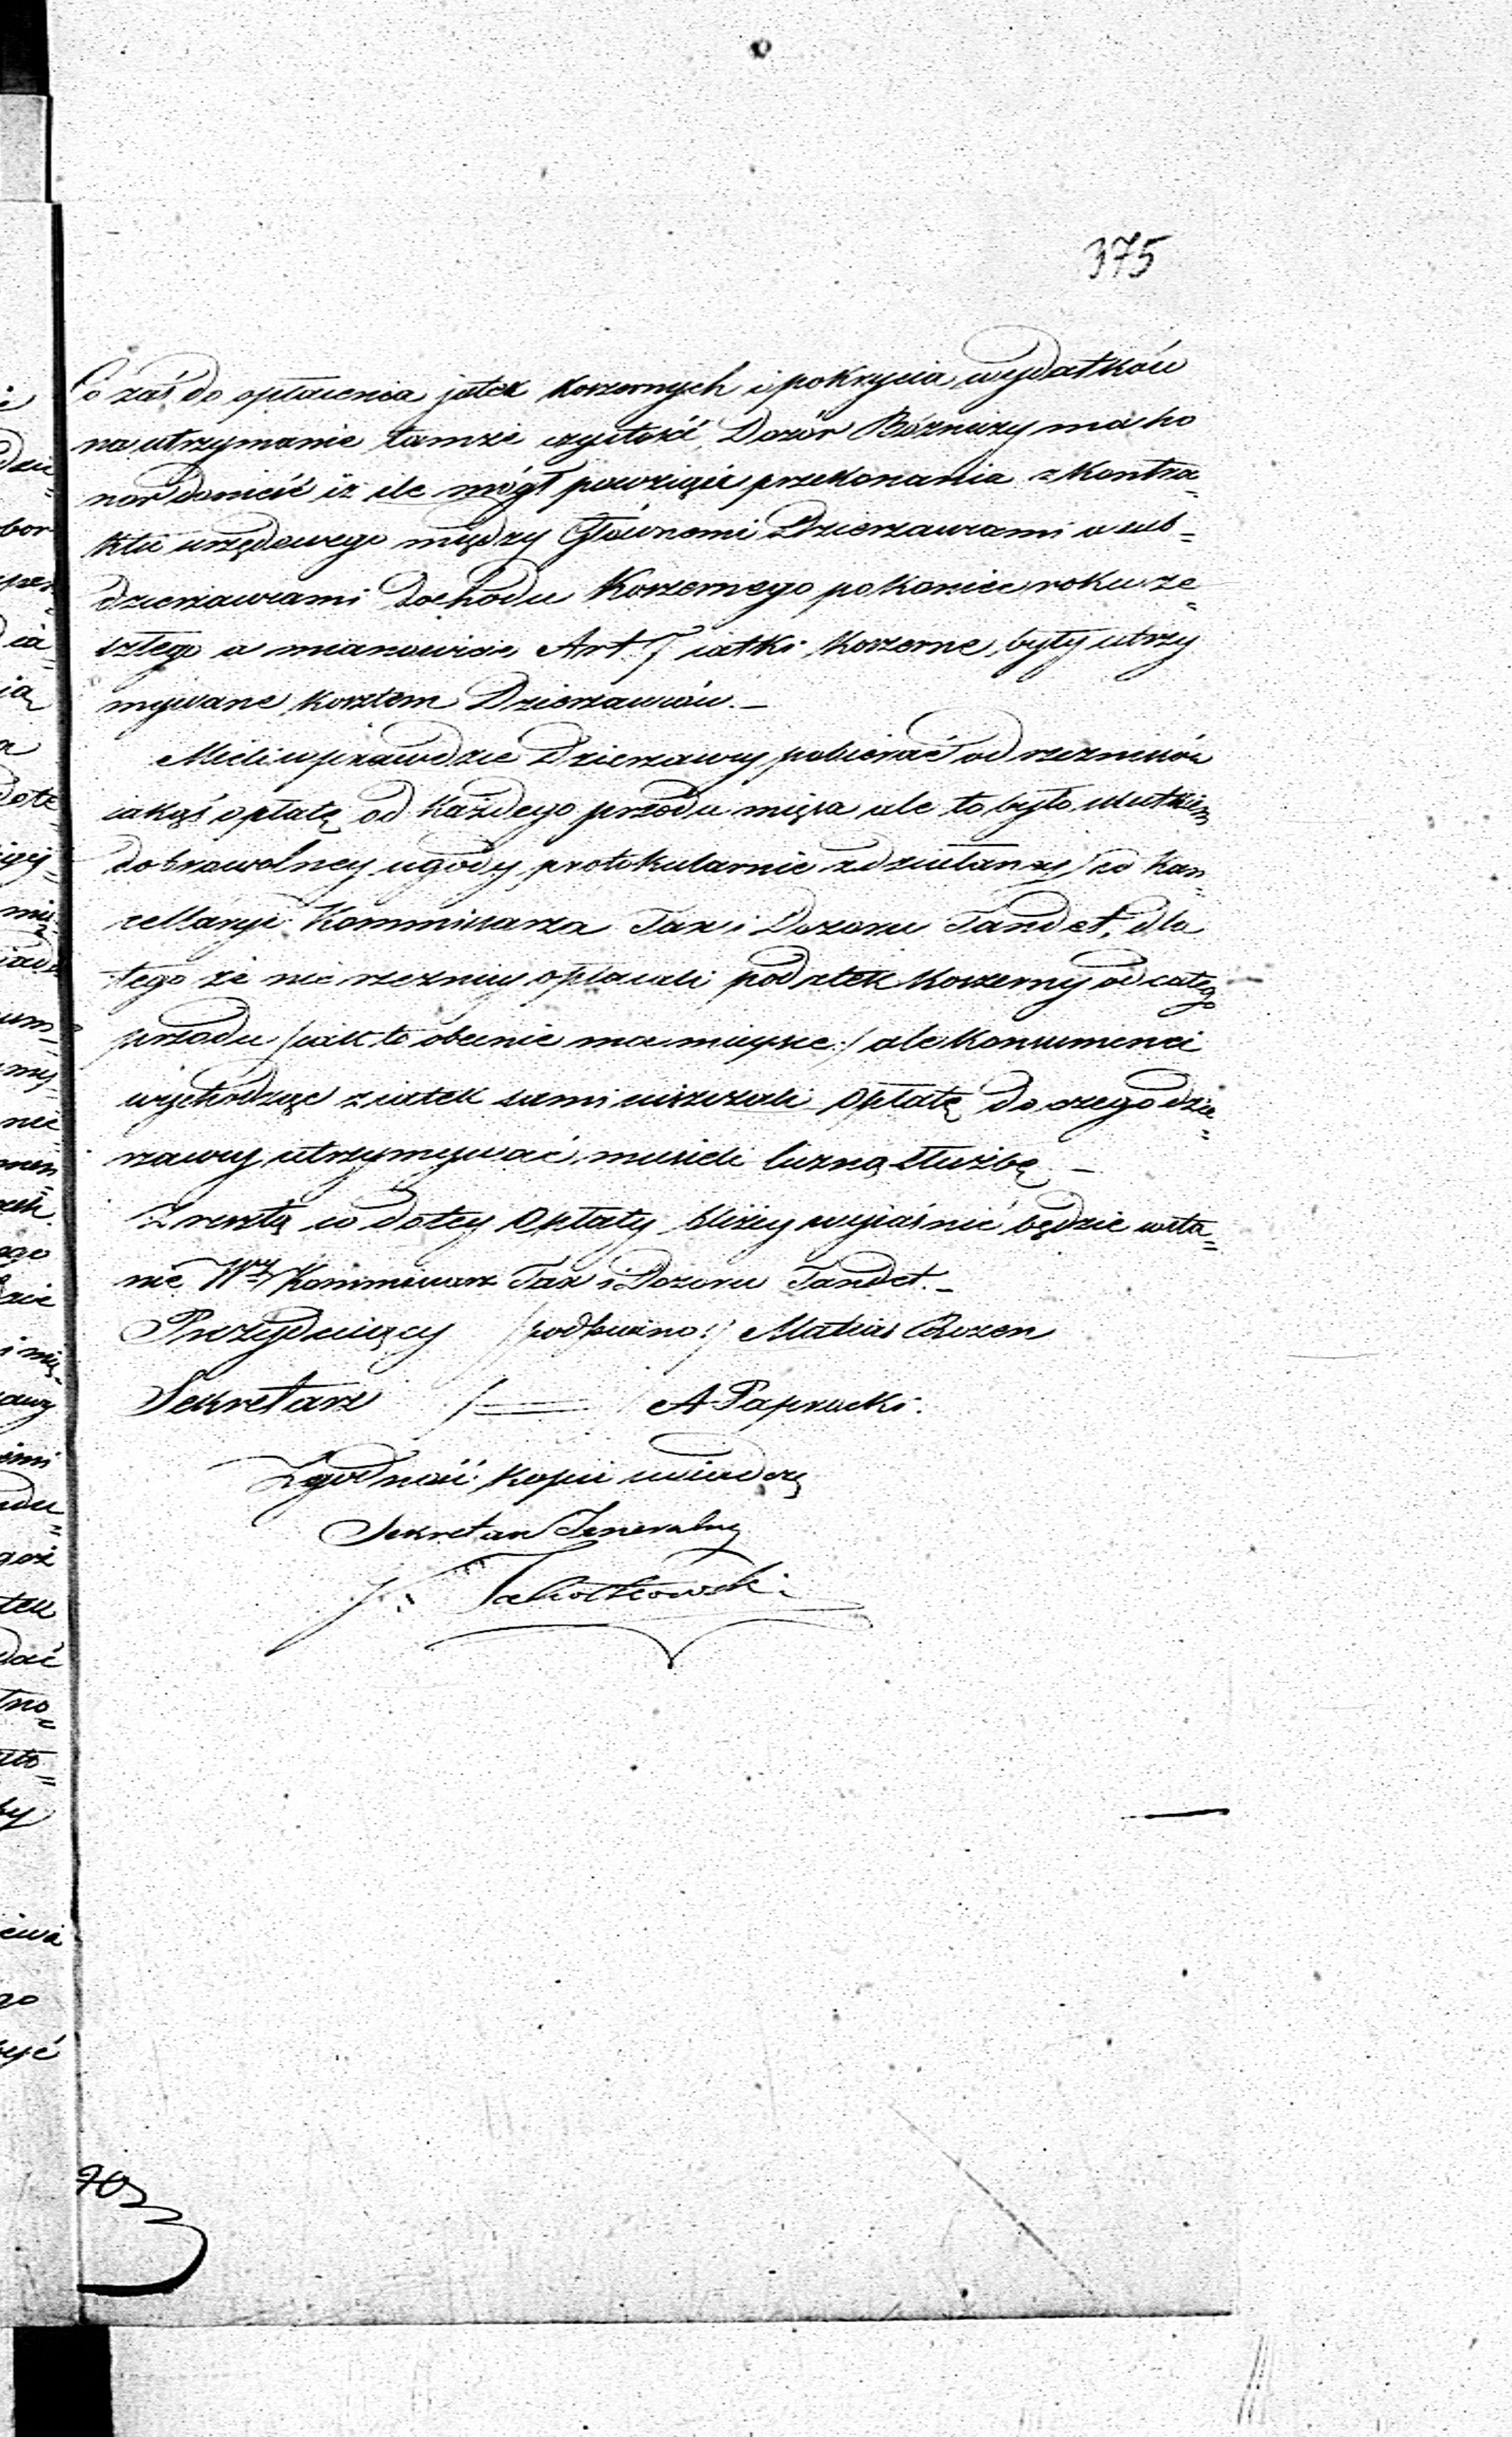 375
Co zaś do opłacenia jatek koszernych i pokrycia wydatków
na utrzymanie tamże czystość, Dozór Bóżniczy ma ho
nor donieść iż ile mógł powziąść przekonania z Kontra-
ktu urzędowego między Głównemi Dzierzawcami a sub-
dzierzawcami Dochodu Koszernego po koniec roku ze-
szłego a mianowicie Art. 7 iatki Koszerne, były utrzy
mywane kosztem Dzierzawców. –
Mieli wprawdzie Dzierzawcy pobierać od rzezników
iakąś opłatę od każdego przodu mięsa ale to było skutkiem
dobrowolney ugody protokularnie zdziałaney w Kan-
cellaryi Kommissarza Tax i Dozoru Tandet, dla
tego że nie rzeznicy opłacali podatek koszerny od całego
przodu /: iak to obecnie ma mieysce :/ ale konsumenci
wychodząc z iatek sami uiszczali opłatę do czego dzie-
rzawcy utrzymywać musieli liczną służbę –
Zresztą co do tey Opłaty bliżey wyiaśnić będzie w sta-
nie Wny Kommissarz Tax i Dozoru Tandet. –
Prezyduiący /podpisano:/ Matias Rozen
Sekretarz /: = A Paprocki.
Zgodność kopii świadczę
Sekretarz Jeneralny